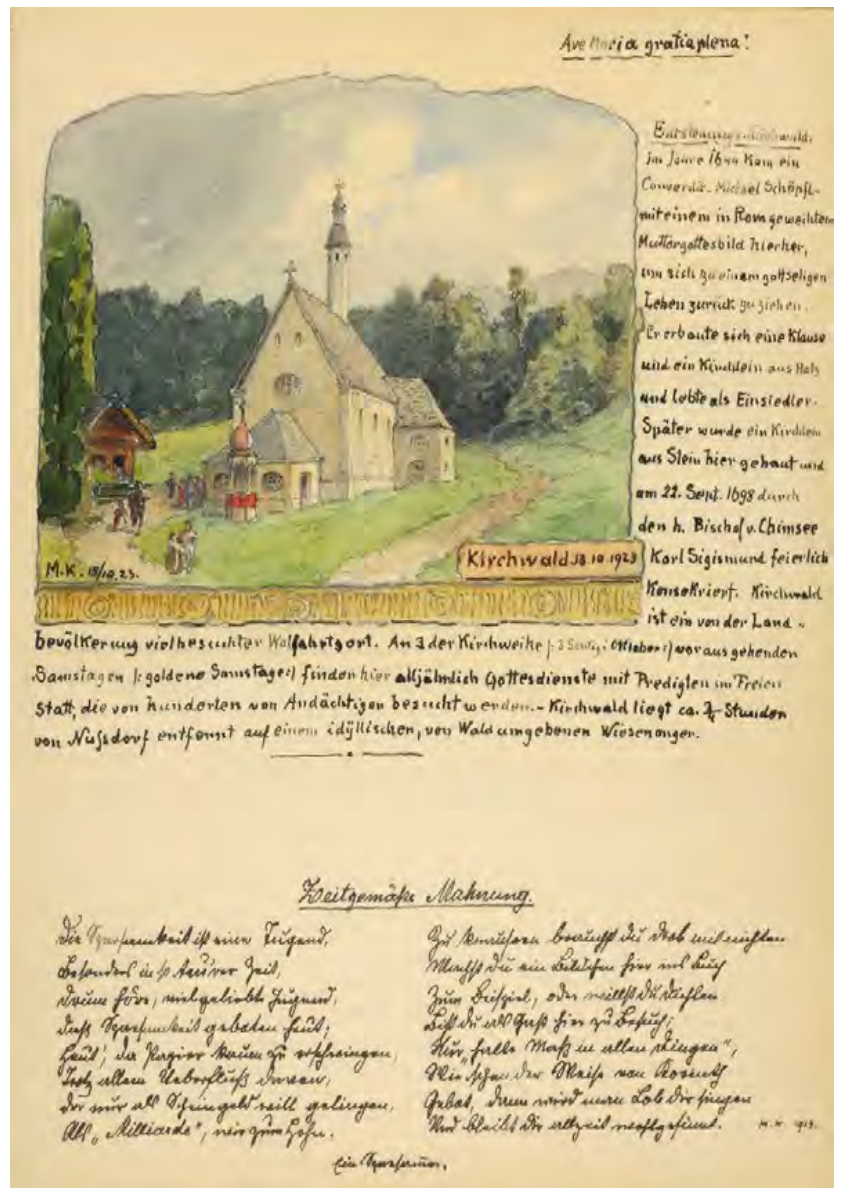 Ave Maria gratia plena!
Entstehung Kirchwald:
Im Jahre 1644 kam ein
Michael Schöpfl
mit einem in Rom geweihten
Muttergottesbild hierher,
um sich zu einem gottseligen
Leben zurück zu ziehen.
Er erbaute sich eine Klause
und ein Kirchlein aus Holz
und lebte als Einsiedler.
Später wurde ein Kirchlein
aus Stein hier gebaut und
am 22. Sept. 1698 durch
den h. Bischof v. Chimsee
Karl Sigismund feierlich
Konsekriert. Kirchwald
ist ein von der Land-
bevölkerung vielbesuchter Walfahrtsort. An 3 der Kirchweihe (: 3 Sontg: Oktober:) vorausgehenden
Samstagen (: goldene Samstage:) finden hier alljährlich Gottesdienste mit Predigten im Freien
statt, die von hunderten von Andächtigen besucht werden. - Kirchwald liegt ca. Stunden
von Nußdorf entfernt auf einem idyllischen, von Wald umgebenen Wiesenanger.
M.K. 18/10.23.
Kirchwald 18.10.1923
Zeitgemäße Mahnung.
Die Sparsamkeit ist eine Tugend,
Besonders in so teu'rer Zeit,
Drum höre, vielgeliebte Jugend,
daß Sparsamkeit geboten heut;
Heut', da Papier kaum zu erschwingen,
Trotz allem Ueberfluß davon,
der nur als Scheingeld will gelingen,
Als „Milliarde", wie zum Hohn.
Zu knausern brauchst du drob mit nichten
Machst du ein Bildchen hier ins Buch
Zum Beispiel, oder willst du dichten
Bist du als Gast hier zu Besuch;
Nur „halte Maß in allen Dingen",
Wie schon der Weise von Korinth
Gebot, dann wird man Lob dir singen
Und bleibt dir allzeit wohlgesinnt. M.K. 1923.
Ein Sparsamer.